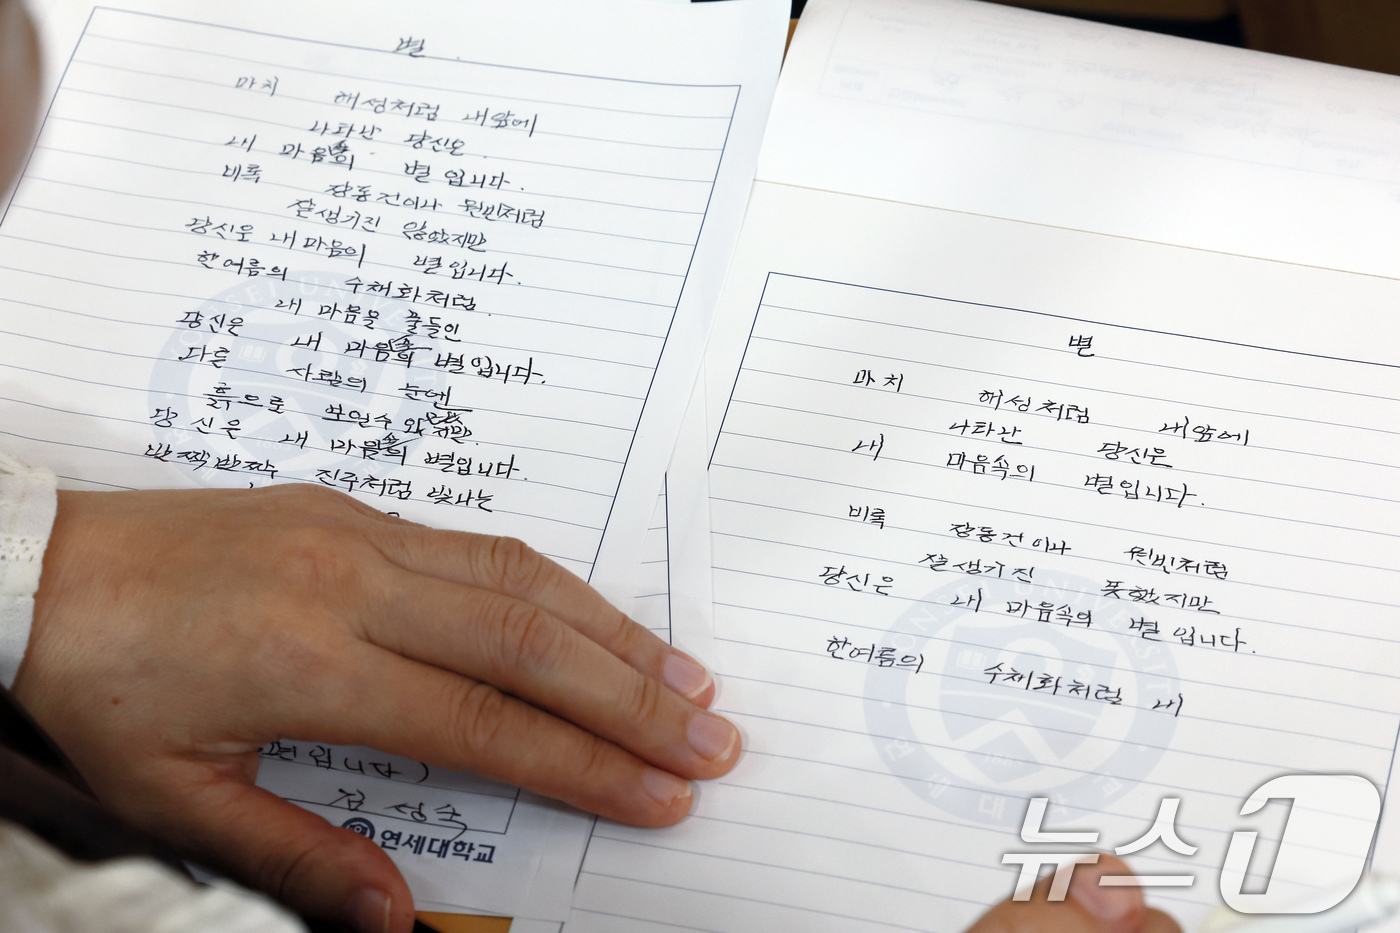 별
마치 해성처럼 내앞에
나타난 당신은
내 마음의 별입니다.
비록 장동건이나 원빈처럼
잘생기진 않았지만
당신은 내마음의 별입니다.
한여름의 수채화처럼
내 마음을 물들인
당신은 내 마음속의 별입니다.
다른 사람의 눈엔
흙으로 보일수
당신은 내 마음속의 별입니다.
반짝반짝 진주처럼 빛나는
입니다)
김성숙
연세대학교
별
마치 해성처럼 내앞에
나타난 당신은
내 마음속의 별입니다.
비록 장동건이나 원빈처럼
잘생기진 못했지만
당신은 내 마음속의 별입니다.
한여름의 수채화처럼 내
YONSEI UNIVERSITY
연세대학교
뉴스1